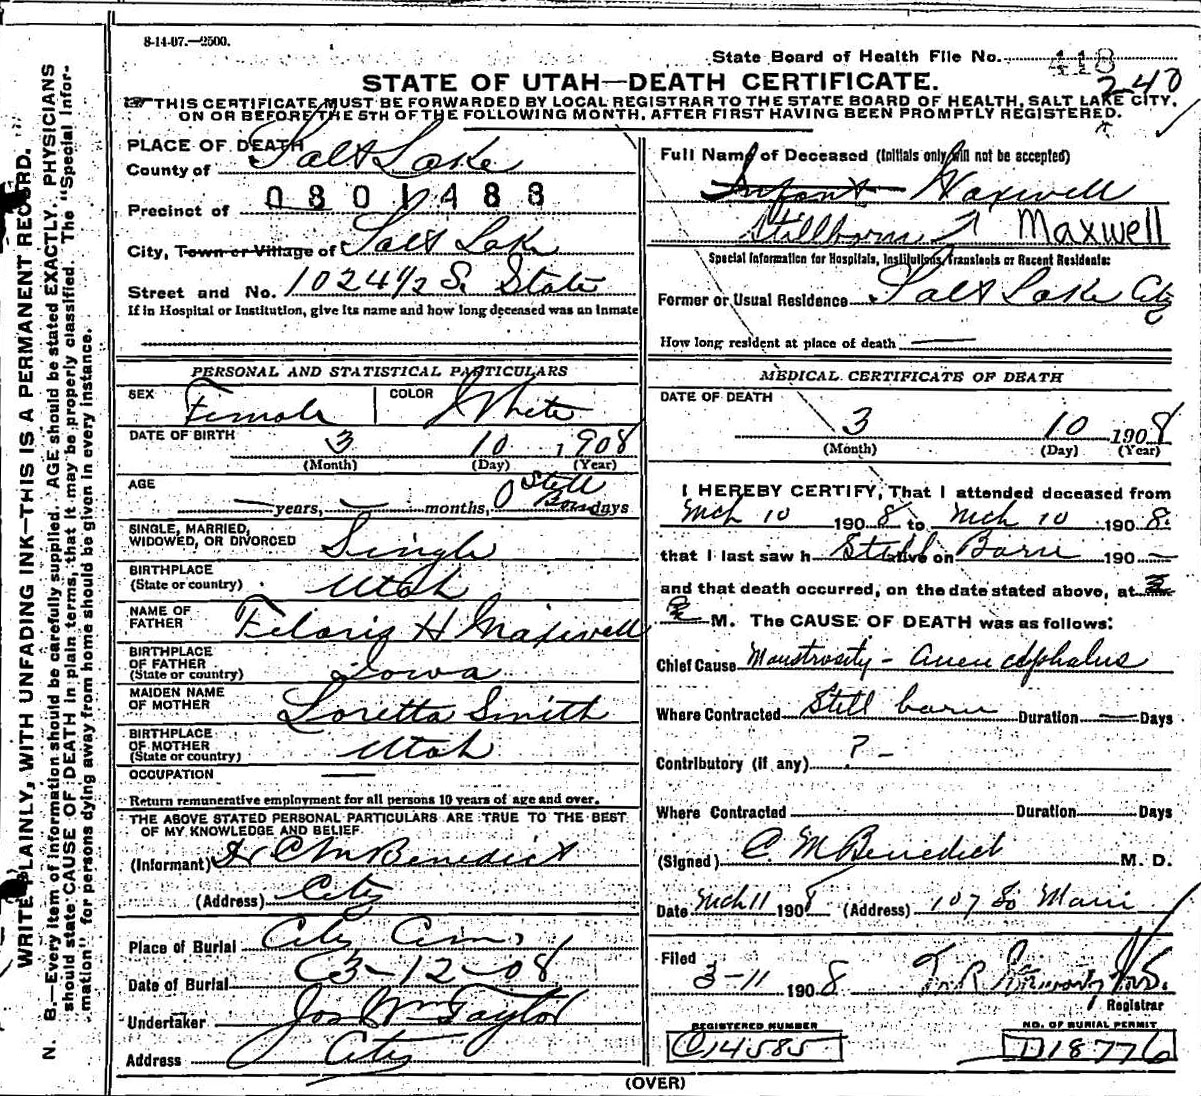 8-14-07.—2500.
State Board of Health File No. 418
240
STATE OF UTAH—DEATH CERTIFICATE.
THIS CERTIFICATE MUST BE FORWARDED BY LOCAL REGISTRAR TO THE STATE BOARD OF HEALTH, SALT LAKE CITY,
ON OR BEFORE THE 5TH OF THE FOLLOWING MONTH, AFTER FIRST HAVING BEEN PROMPTLY REGISTERED.
WRITE PLAINLY, WITH UNFADING INK—THIS IS A PERMANENT RECORD.
N. B.—Every item of information should be carefully supplied. AGE should be stated EXACTLY. PHYSICIANS
should state CAUSE OF DEATH in plain terms, that it may be properly classified. The "Special Infor-
mation" for persons dying away from home should be given in every instance.
PLACE OF DEATH
County of Salt Lake
Precinct of 0801488
City, Town or Village of Salt Lake
Street and No. 1024½ S. State
If in Hospital or Institution, give its name and how long deceased was an inmate
PERSONAL AND STATISTICAL PARTICULARS
SEX Female COLOR White
DATE OF BIRTH 3 10 1908
(Month) (Day) (Year)
AGE — years, — months, 0 Still Born days
SINGLE, MARRIED,
WIDOWED, OR DIVORCED Single
BIRTHPLACE
(State or country) Utah
NAME OF
FATHER H Maxwell
BIRTHPLACE
OF FATHER
(State or country) Iowa
MAIDEN NAME
OF MOTHER Loretta Smith
BIRTHPLACE
OF MOTHER
(State or country) Utah
OCCUPATION —
Return remunerative employment for all persons 10 years of age and over.
THE ABOVE STATED PERSONAL PARTICULARS ARE TRUE TO THE BEST
OF MY KNOWLEDGE AND BELIEF
(Informant) Dr C M Benedict
(Address) City
Place of Burial City Cem.
Date of Burial 3-12-08
Undertaker Jos Wm Taylor
Address City
Full Name of Deceased (Initials only will not be accepted)
Infant Maxwell
Stillborn Maxwell
Special Information for Hospitals, Institutions, Transients or Recent Residents:
Former or Usual Residence Salt Lake City
How long resident at place of death —
MEDICAL CERTIFICATE OF DEATH
DATE OF DEATH
3 10 1908
(Month) (Day) (Year)
I HEREBY CERTIFY, That I attended deceased from
Mch 10 1908 to Mch 10 1908.
that I last saw h Still alive on Born 190 —
and that death occurred, on the date stated above, at
M. The CAUSE OF DEATH was as follows:
Chief Cause Monstrosity - anencephalus
Where Contracted Still born Duration — Days
Contributory (if any) ? -
Where Contracted Duration Days
(Signed) C. M Benedict M. D.
Date Mch 11 1908 (Address) 107 So Main
Filed 3-11 1908
Registrar
REGISTERED NUMBER
C14585
NO. OF BURIAL PERMIT
D18776
(OVER)